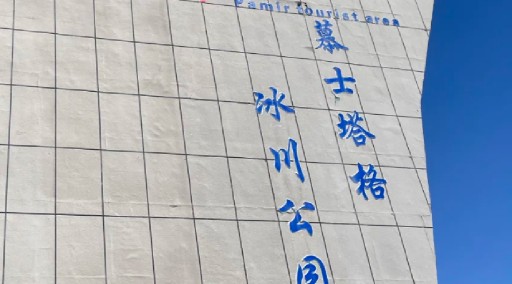 amir tourist area
慕士塔格
冰川公园